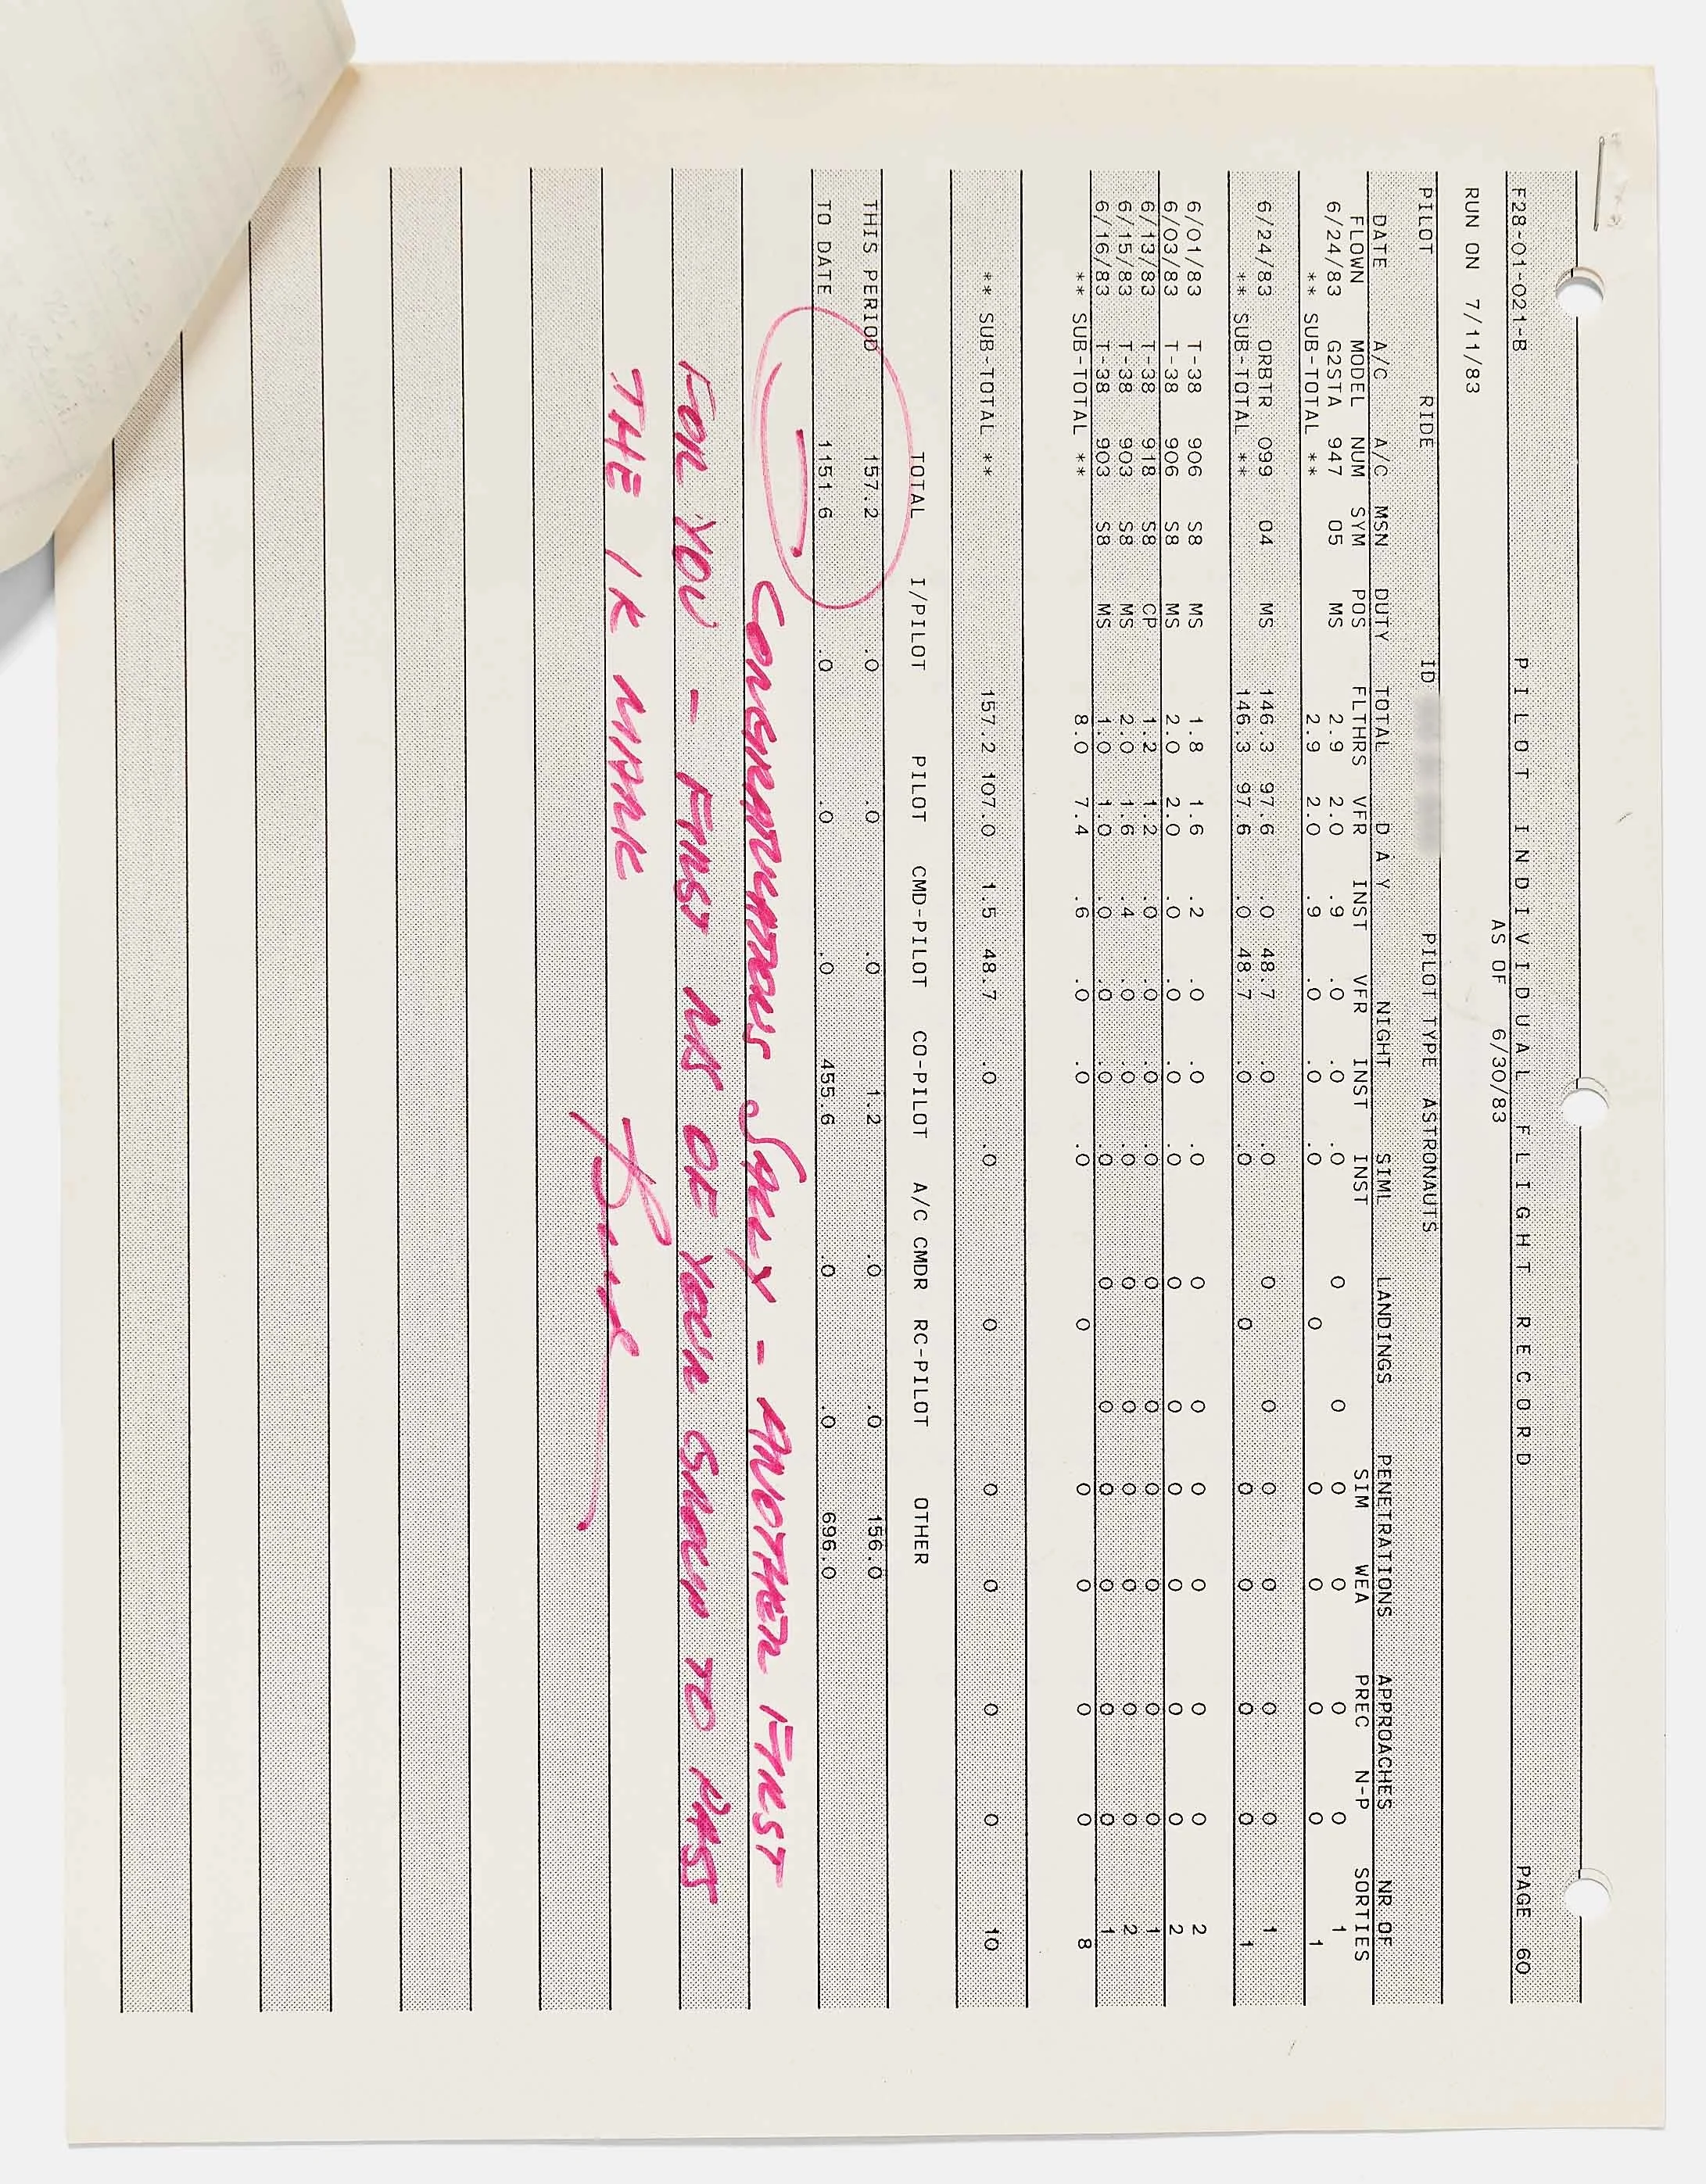 F28-01-021-B PILOT INDIVIDUAL FLIGHT RECORD PAGE 60
AS OF 6/30/83
RUN ON 7/11/83
PILOT RIDE ID PILOT TYPE ASTRONAUTS
DATE A/C A/C MSN DUTY TOTAL D A Y NIGHT SIML LANDINGS PENETRATIONS APPROACHES NR OF
FLOWN MODEL NUM SYM POS FLTHRS VFR INST VFR INST INST SIM WEA PREC N-P SORTIES
6/24/83 G2STA 947 05 MS 2.9 2.0 .9 .0 .0 .0 0 0 0 0 0 0 1
** SUB-TOTAL ** 2.9 2.0 .9 .0 .0 .0 0 0 0 0 0 1
6/24/83 ORBTR 099 04 MS 146.3 97.6 .0 48.7 .0 .0 0 0 0 0 0 0 1
** SUB-TOTAL ** 146.3 97.6 .0 48.7 .0 .0 0 0 0 0 0 1
6/01/83 T-38 906 S8 MS 1.8 1.6 .2 .0 .0 .0 0 0 0 0 0 0 2
6/03/83 T-38 906 S8 MS 2.0 2.0 .0 .0 .0 .0 0 0 0 0 0 0 2
6/13/83 T-38 918 S8 CP 1.2 1.2 .0 .0 .0 .0 0 0 0 0 0 0 1
6/15/83 T-38 903 S8 MS 2.0 1.6 .4 .0 .0 .0 0 0 0 0 0 0 2
6/16/83 T-38 903 S8 MS 1.0 1.0 .0 .0 .0 .0 0 0 0 0 0 0 1
** SUB-TOTAL ** 8.0 7.4 .6 .0 .0 .0 0 0 0 0 0 8
** SUB-TOTAL ** 157.2 107.0 1.5 48.7 .0 .0 0 0 0 0 0 10
TOTAL I/PILOT PILOT CMD-PILOT CO-PILOT A/C CMDR RC-PILOT OTHER
THIS PERIOD 157.2 .0 .0 .0 1.2 .0 .0 156.0
TO DATE 1151.6 .0 .0 .0 455.6 .0 .0 696.0
CONGRATULATIONS SALLY - ANOTHER FIRST
FOR YOU - FIRST MS OF YOUR GROUP TO PASS
THE 1K MARK